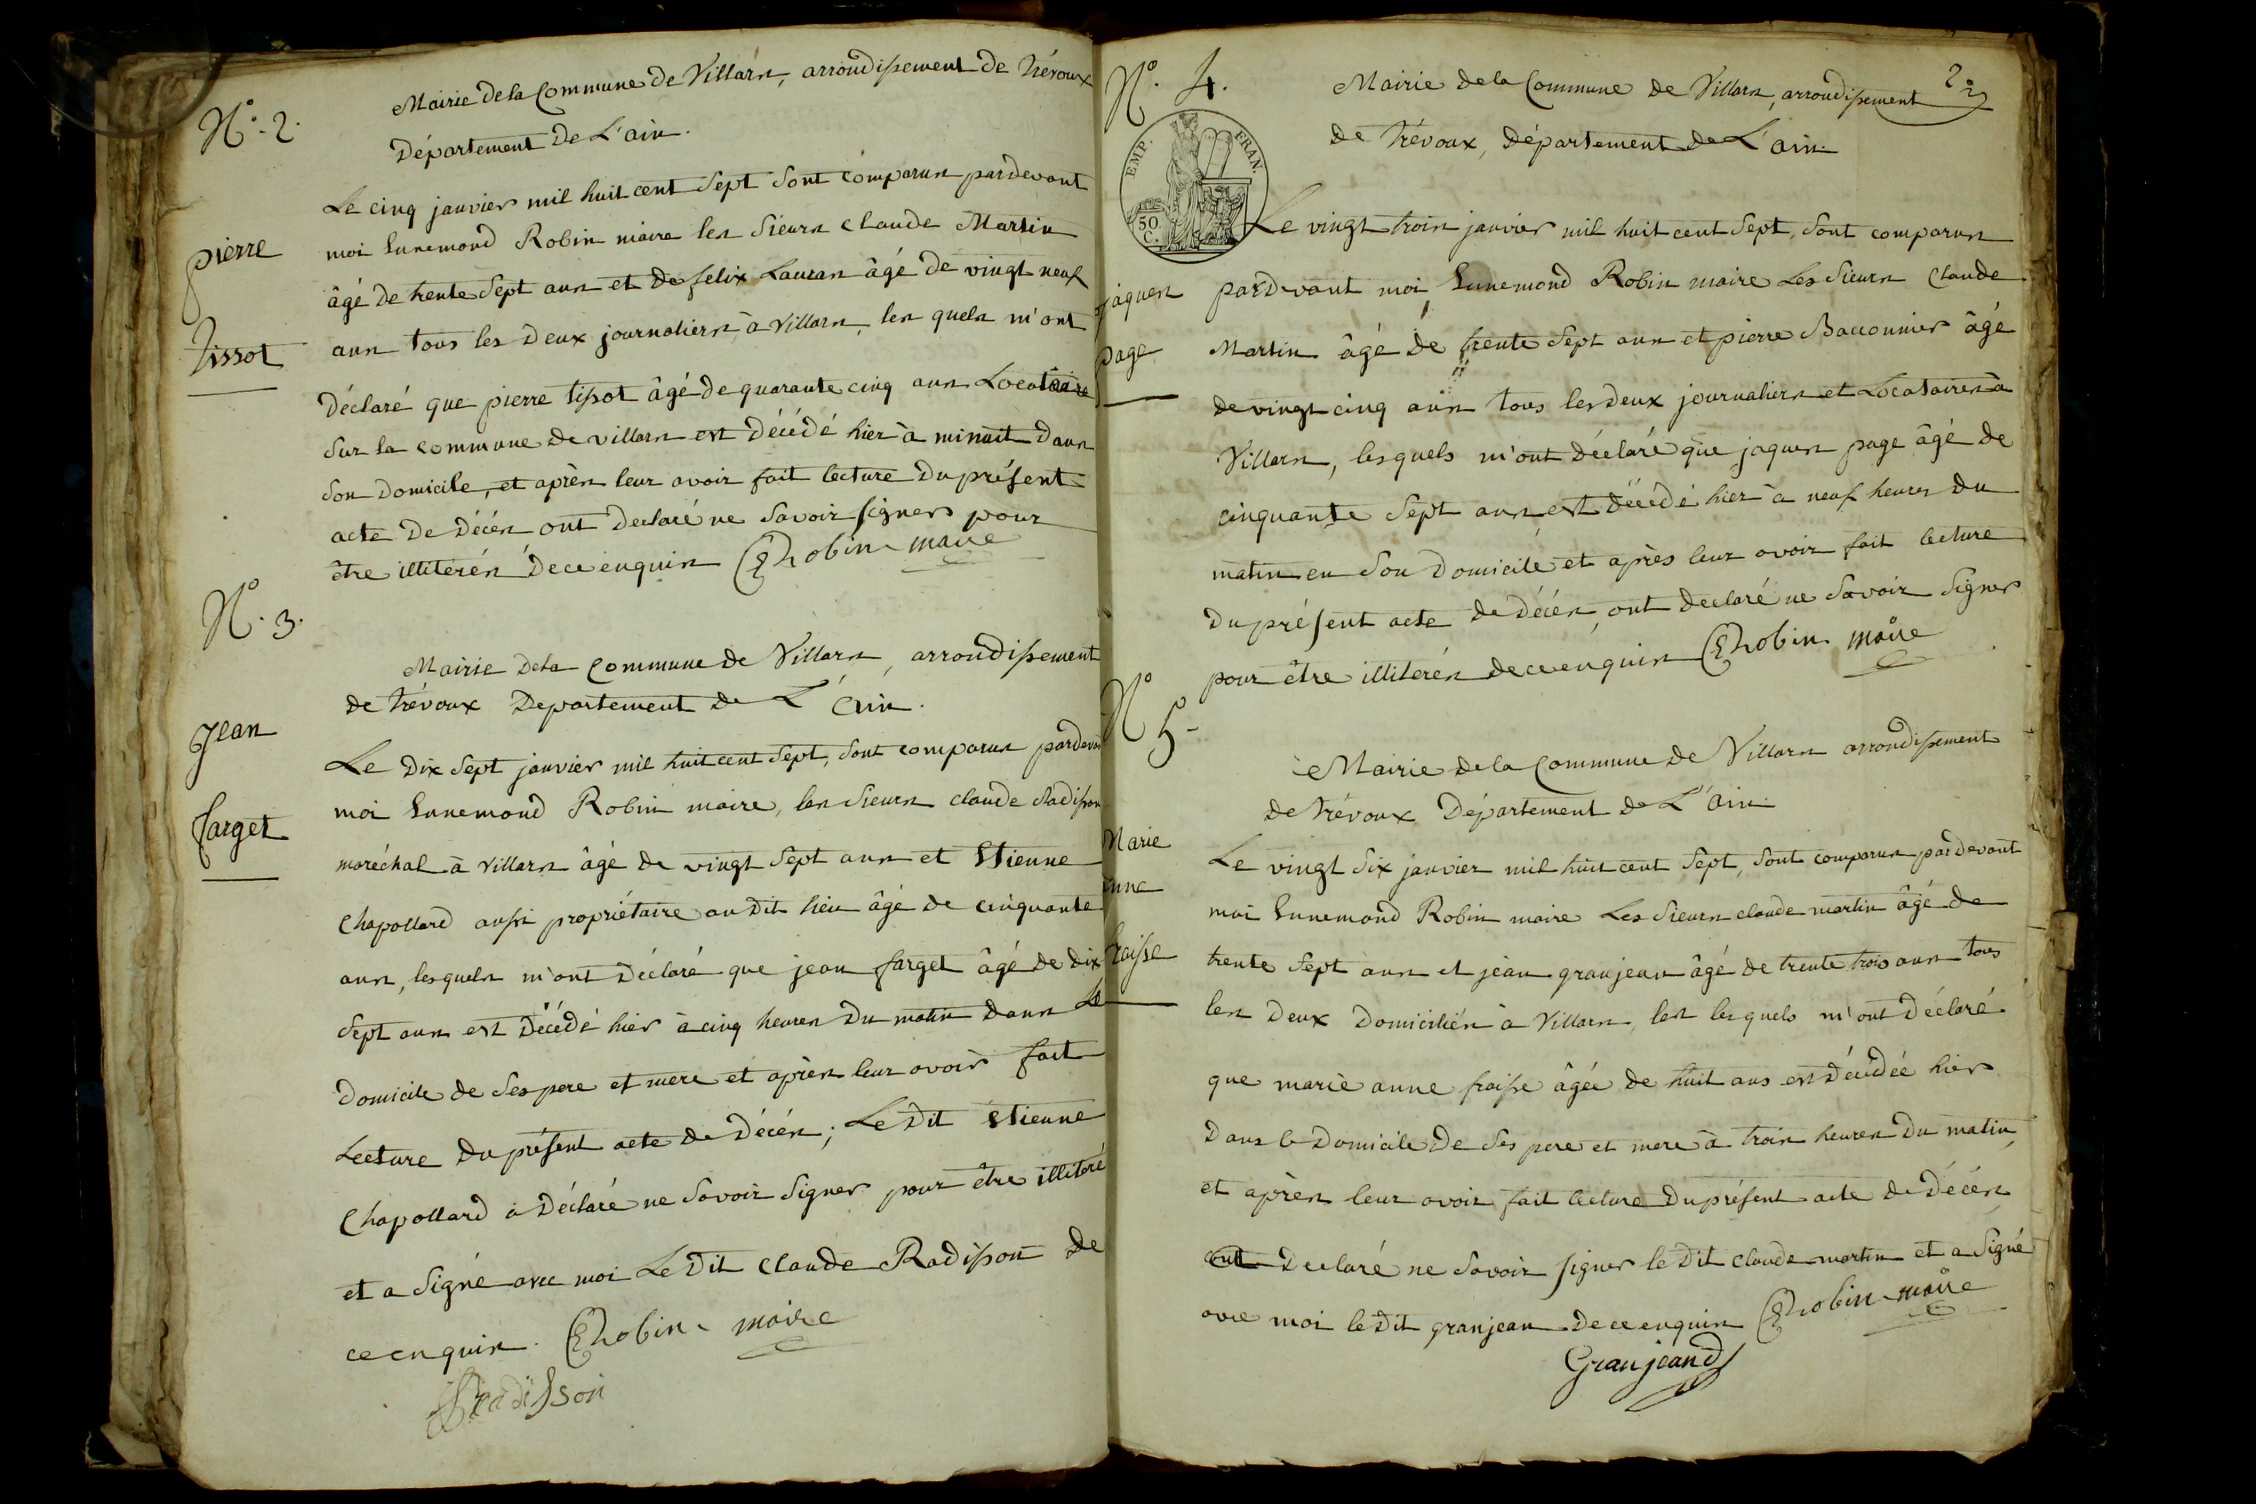 N° 2.
Mairie de la Commune de Villars, arrondissement de Trévoux
Département de L'ain.
pierre
Tissot
Le cinq janvier mil huit cent Sept Sont comparus pardevant
moi Ennemond Robin maire les Sieurs Claude Martin
âgé de trente Sept ans et de felix Lauran âgé de vingt neuf
ans tous les deux journaliers à Villars, les quels m'ont
déclaré que pierre tissot âgé de quarante cinq ans Locataire
Sur la commune de villars est décédé hier à minuit dans
Son domicile, et après leur avoir fait lecture du présent
acte de décès ont declaré ne Savoir signer pour
être illiterés de ce enquis ERobin maire
N° 3.
Mairie de la Commune de Villars, arrondissement
de Trévoux Departement de L'Ain.
Jean
farget
Le dix Sept janvier mil huit cent Sept, Sont comparus pardevan
moi Ennemond Robin maire, les Sieurs claude Radisson
maréchal à Villars âgé de vingt Sept ans et Etienne
Chapollard aussi propriétaire au dit lieu âgé de cinquante
ans, lesquels m'ont déclaré que jean farget âgé de dix
Sept ans est décédé hier à cinq heures du matin dans Le
domicile de Ses pere et mere et après leur avoir fait
Lecture du présent acte de décès; Le dit Etienne
Chapollard à déclaré ne Savoir Signer pour être illiteré
et a Signé avec moi Le dit Claude Radisson de
ce enquis. ERobin maire
Radisson
2
N° 4.
Mairie de la Commune de Villars, arrondissement
de Trévoux, département de L'ain.
EMP. FRAN.
50 C.
jaques
page
Le vingt trois janvier mil huit cent Sept, Sont comparus
pardevant moi Ennemond Robin maire Les Sieurs Claude
Martin âgé de trente Sept ans et pierre Bacconnier âgé
de vingt cinq ans tous les deux journaliers et Locataires à
Villars, lesquels m'ont déclaré que jaques page âgé de
cinquante Sept ans est décédé hier à neuf heures du
matin en Son domicile et après leur avoir fait lecture
du présent acte de décès, ont declaré ne Savoir Signer
pour être illiterés de ce enquis ERobin maire
N° 5
Mairie de la Commune de Villars arrondissement
de Trévoux Département de L'ain.
Marie
anne
fraisse
Le vingt Six janvier mil huit cent Sept, Sont comparus pardevant
moi Ennemond Robin maire Les Sieurs claude martin âgé de
trente Sept ans et jean granjean âgé de trente trois ans tous
les deux domiciliés à Villars, les lesquels m'ont déclaré
que marie anne fraisse âgée de huit ans est décédée hier
dans le domicile de Ses pere et mere à trois heures du matin
et après leur avoir fait lecture du présent acte de décès,
ont declaré ne Savoir signer le dit claude martin et a Signé
avec moi le dit granjean de ce enquis ERobin maire
Granjeand